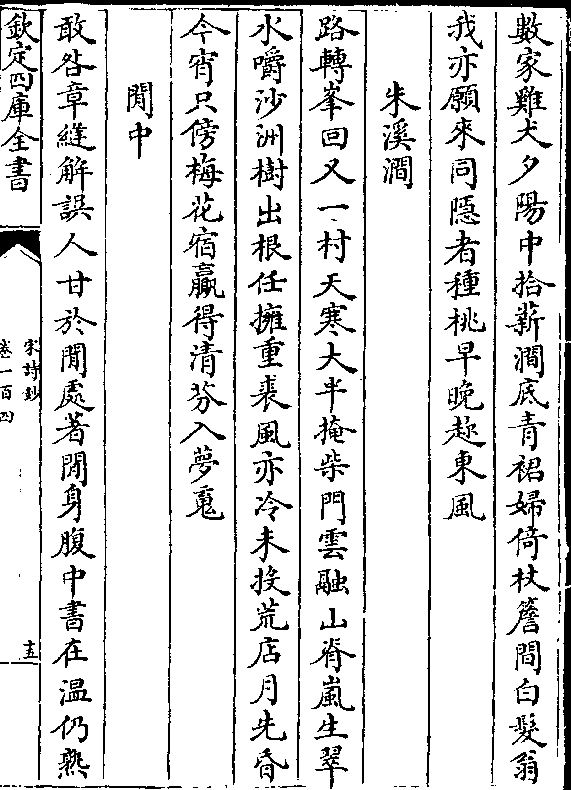 數家雞犬夕陽中拾薪澗底青裙婦倚杖簷間白髮翁
我亦願來同隱者種桃早晚趂東風
朱溪澗
路轉峯回又一村天寒大半掩柴門雲融山脊嵐生翠
水嚼沙洲樹出根任擁重裘風亦冷未投荒店月先昏
今宵只傍梅花宿贏得清芬入夢䰟
閒中
敢咎章縫解誤人甘於閒處著閒身腹中書在温仍熟
欽定四庫全書
宋詩鈔
卷一百四
十五